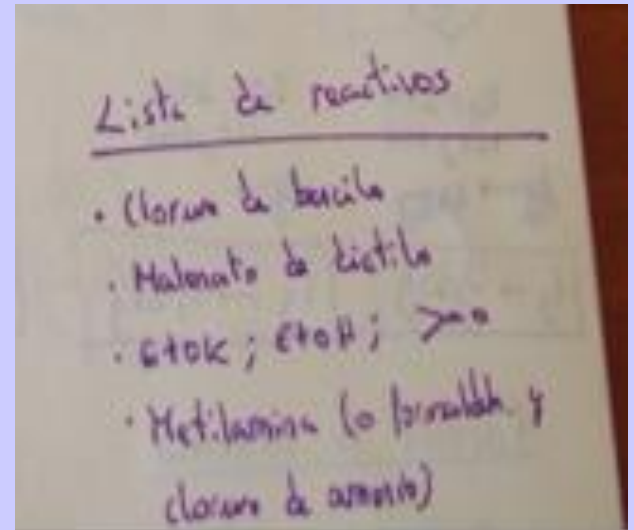 Lista de reactivos
· Cloruro de bencilo
· Malonato de dietilo
· EtOK; EtOH;
· Metilamina (o formaldeh. y
cloruro de amonio)